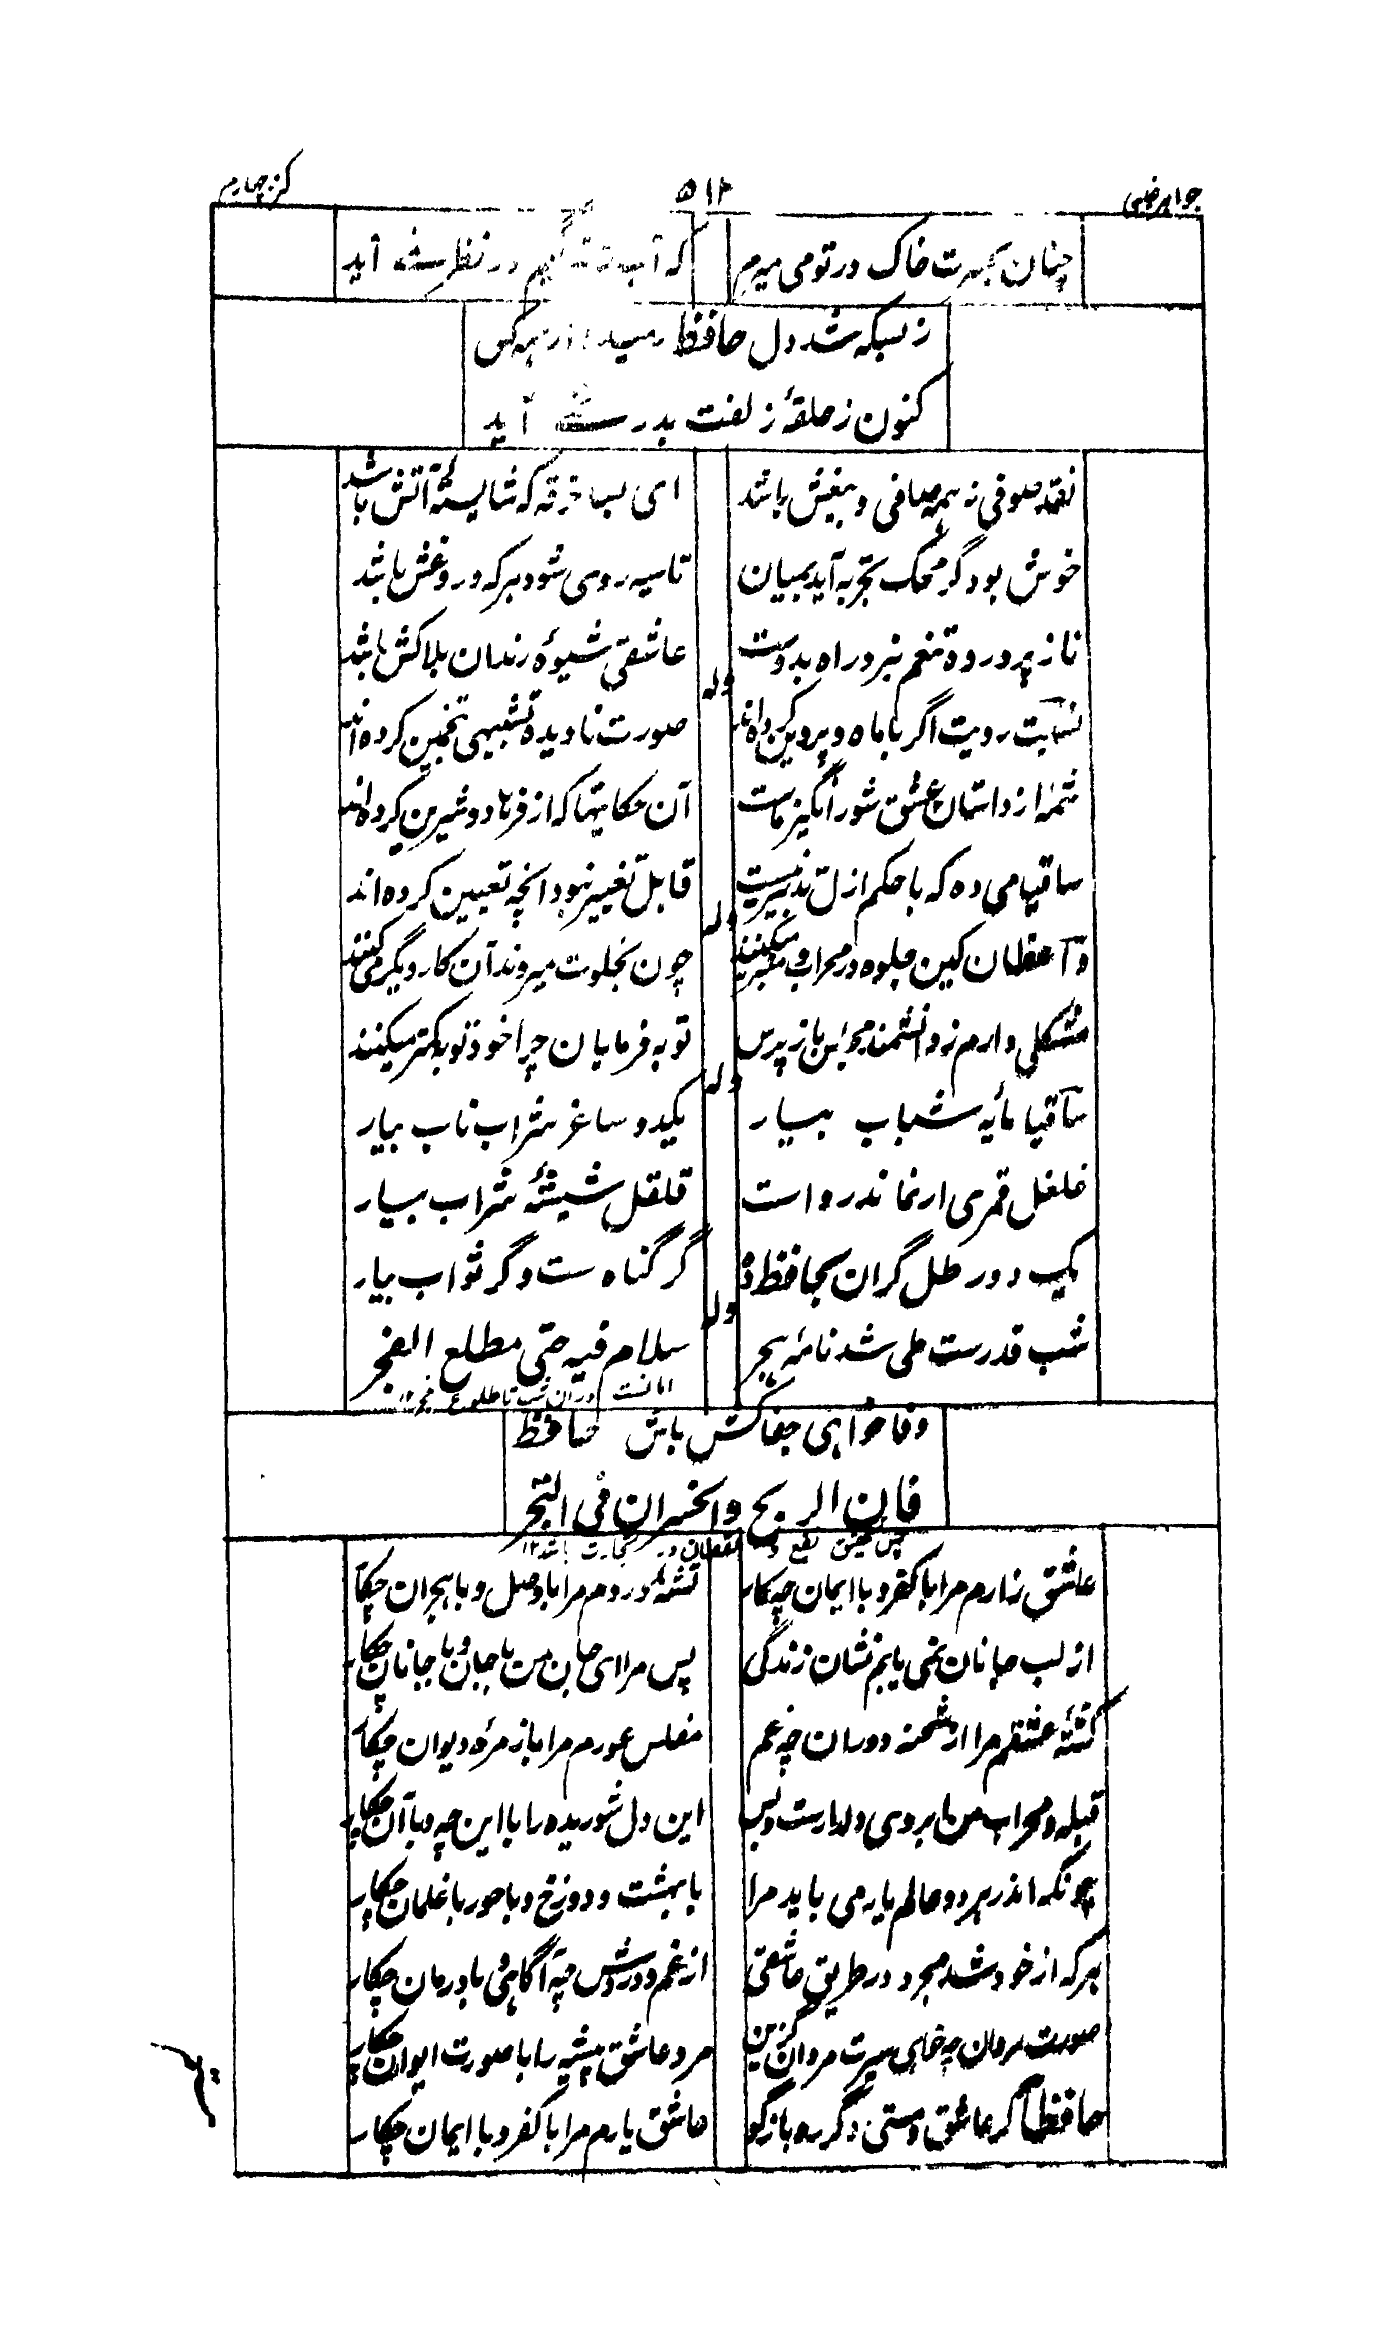 جواہر نفیس ۵۱۲ کنز چہارم
چنان بہ حسرت خاک در تو می میرم که آب زندگیم در نظر نمے آید
ز بسکہ شد دل حافظ رمیدہ از ہمہ کس
کنون ز حلقۂ زلفت بدر نمے آید
نقد صوفی نہ ہمہ صافی و بیغش باشد ای بسا خرقہ کہ شایستۂ آتش باشد
خوش بود گر محک تجربہ آید بمیان تا سیہ روی شود ہر کہ درو غش باشد
ناز پروردہ تنعم نبرد راہ بدوست عاشقی شیوۂ رندان بلاکش باشد
ولہ
نسبت رویت اگر با ماہ و پروین کردہ اند صورت نادیدہ تشبیہی تخمین کردہ اند
شمۂ از داستان عشق شورانگیز ماست آن حکایتہا کہ از فرہاد و شیرین کردہ اند
ساقیا می دہ کہ با حکم ازل تدبیر نیست قابل تغییر نبود انچہ تعیین کردہ اند
ولہ
واعظان کین جلوہ در محراب و منبر میکنند چون بخلوت میروند آن کار دیگر می کنند
مشکلی دارم ز دانشمند مجلس باز پرس توبہ فرمایان چرا خود توبہ کمتر میکنند
ولہ
ساقیا مایہ شباب بیار یکدو ساغر شراب ناب بیار
غلغل قمری ار نماند رواست قلقل شیشۂ شراب بیار
یک دو رطل گران بحافظ دہ گر گناہ ست و گر ثواب بیار
ولہ
شب قدرست طی شد نامۂ ہجر سلام فیہ حتی مطلع الفجر
امانست دران شب تا طلوع فجر ۱۲
وفا خواہی جفاکش باش حافظ
فان الربح والخسران فی التجر
پس تحقیق نفع و نقصان در تجارت باشد ۱۲
عاشق زارم مرا با کفر و با ایمان چہ کار تشنۂ دردم مرا با وصل و با ہجران چکار
از لب جانان نمی یابم نشان زندگی پس مرا ای جان من با جان و با جانان چکار
کشتۂ عشقم مرا از شحنہ دوران چہ غم مفلس عورم مرا با زمرۂ دیوان چکار
قبلہ و محراب من ابروی دلدارست و بس این دل شوریدہ را با این چہ و با آن چکار
چونکہ اندر ہر دو عالم یار می باید مرا با بہشت و دوزخ و با حور با غلمان چکار
ہر کہ از خود شد مجرد در طریق عاشقی از غم و دردش چہ آگاہی و با درمان چکار
صورت مردان چہ خواہی سیرت مردان گزین مرد عاشق پیشہ را با صورت ایوان چکار
حافظا گر عاشق و مستی دگر رہ باز گو عاشق یارم مرا با کفر و با ایمان چکار